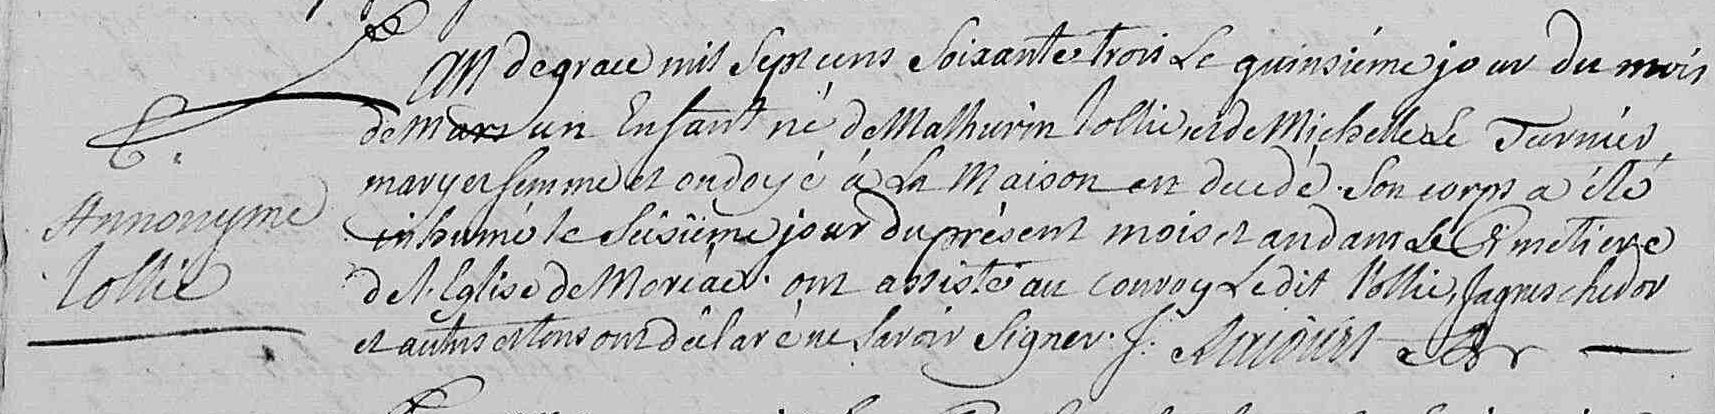 L'an de grace mil Sept cens Soixante trois Le quinsiéme jour du mois
de mars un Enfant né de Mathurin Jollie, et de Michelle Le Turnier,
mary et femme et ondoyé à La Maison est decedé. Son corps a été
inhumé le Seisiéme jour du présent mois et an dans Le Cimetiere
de L'Eglise de Moréac. ont assisté au convoy Ledit Jollie, Jaques chedor
et autres et tous ont déclaré ne Savoir Signer. J.
Annonyme
Jollie